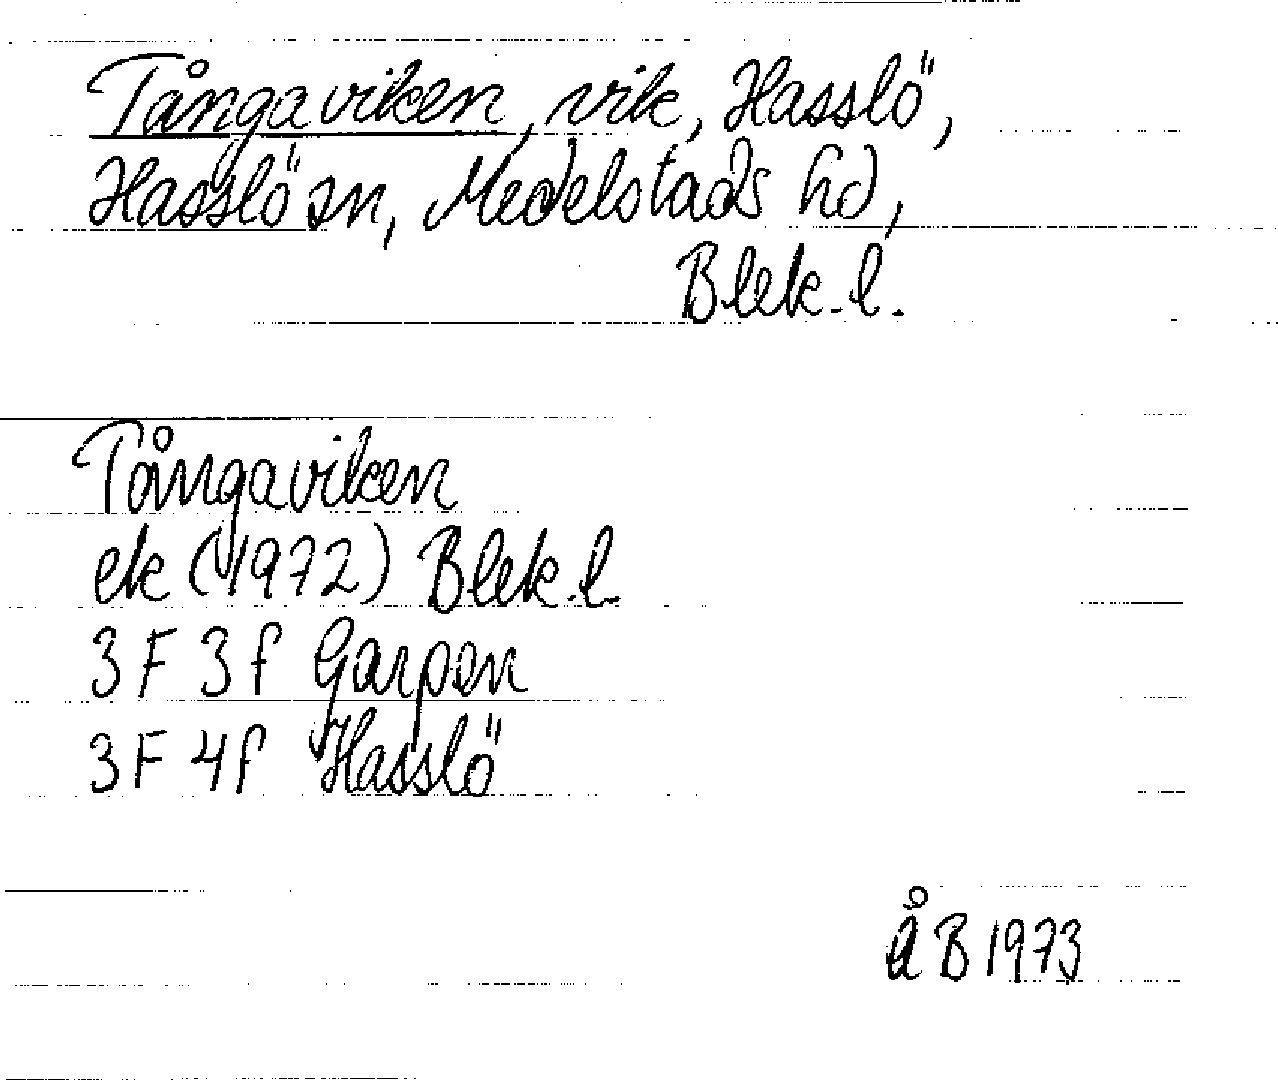 Tångaviken, vik, Hasslö,
Hasslö sn, Medelstads hd,
Blek. l.
Tångaviken
ek (1972) Blek. l.
3 F 3 f Garpen
3 F 4 f Hasslö
ÅB 1973